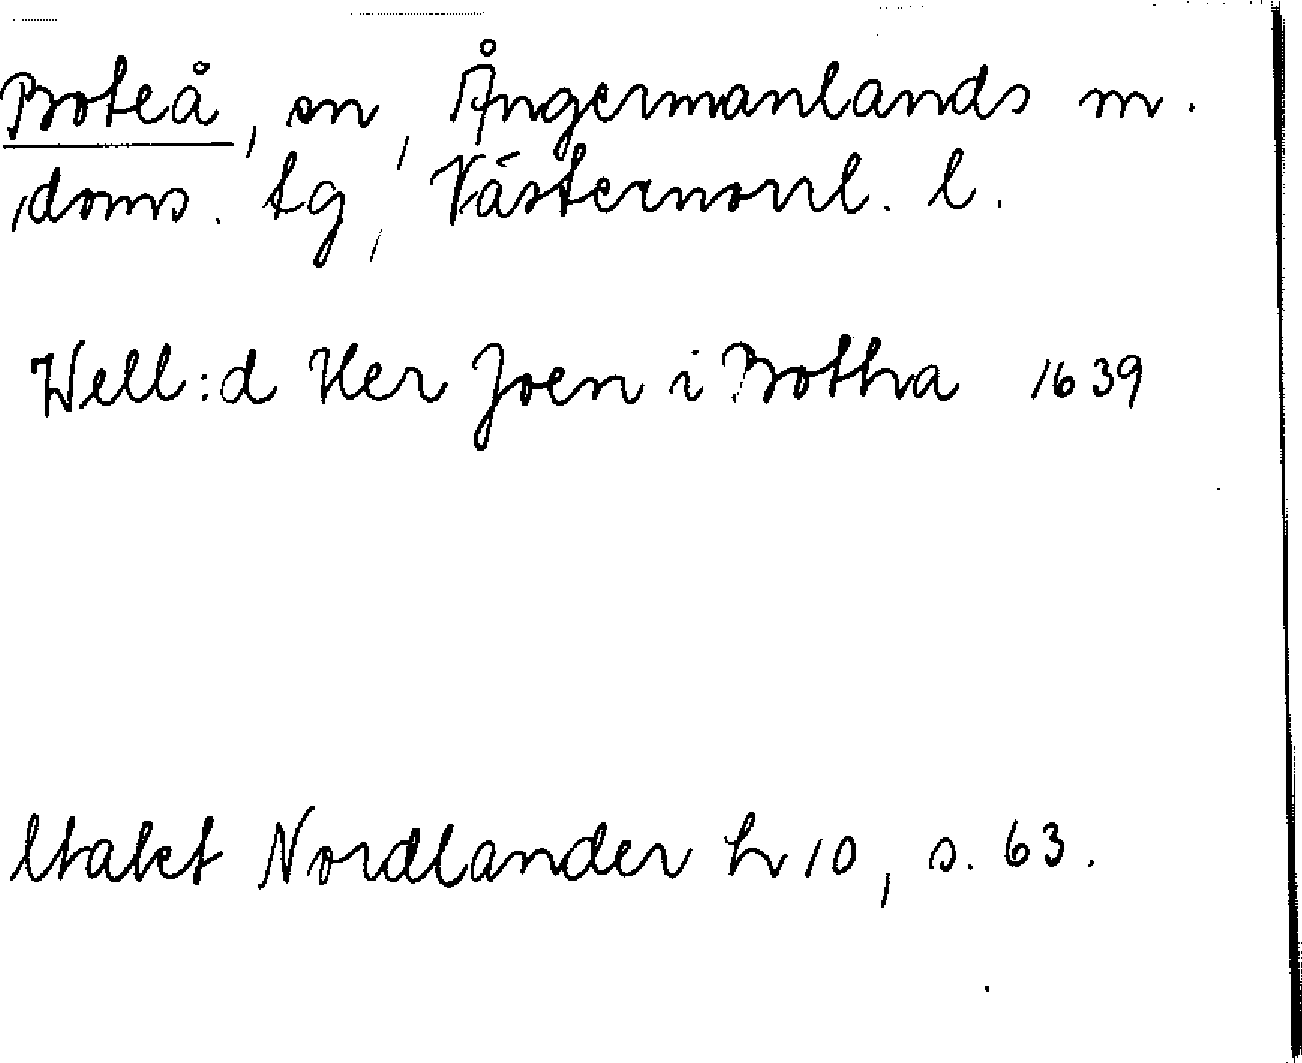 Boteå, sn, Ångermanlands m.
doms. tg, Västernorrl. l.
Well:d Her Joen i Botha 1639
Utabet Nordlander h 10, s. 63.